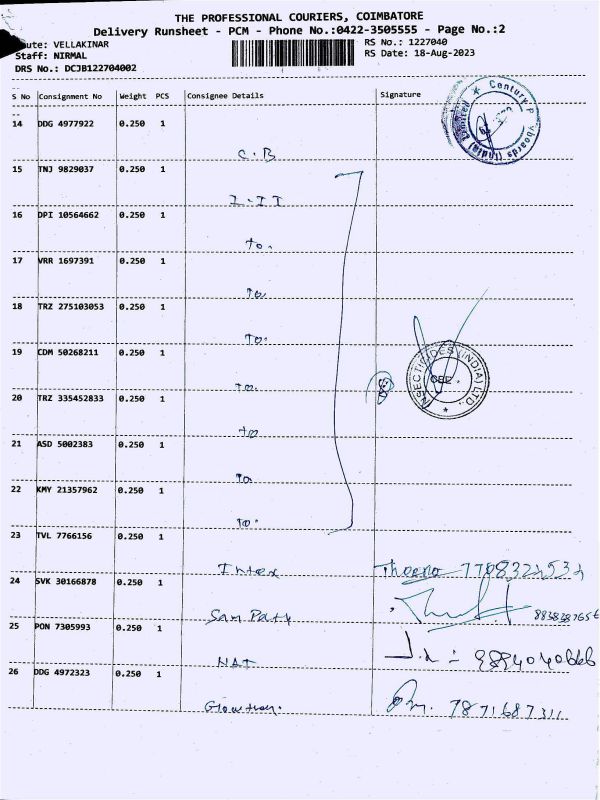 THE PROFESSIONAL COURIERS, COIMBATORE
Delivery Runsheet - PCM - Phone No.:0422-3505555 - Page No.:2
ute: VELLAKINAR
RS No.: 1227040
Staff: NIRMAL
RS Date: 18-Aug-2023
DRS No.: DCJB122704002
S No Consignment No Weight PCS Consignee Details Signature
14 DDG 4977922 0.250 1
C.B
15 TNJ 9829037 0.250 1
I.II
16 DPI 10564662 0.250 1
to.
17 VRR 1697391 0.250 1
To.
18 TRZ 275103053 0.250 1
To.
19 CDM 50268211 0.250 1
To.
20 TRZ 335452833 0.250 1
to
21 ASD 5002383 0.250 1
To.
22 KMY 21357962 0.250 1
To.
23 TVL 7766156 0.250 1
Intex
24 SVK 30166878 0.250 1
25 PON 7305993 0.250 1
NAT 9894040666
26 DDG 4972323 0.250 1
7871687311
Century P yboards (India) Limited
NSECTICIDES (INDIA) LTD.
CBE